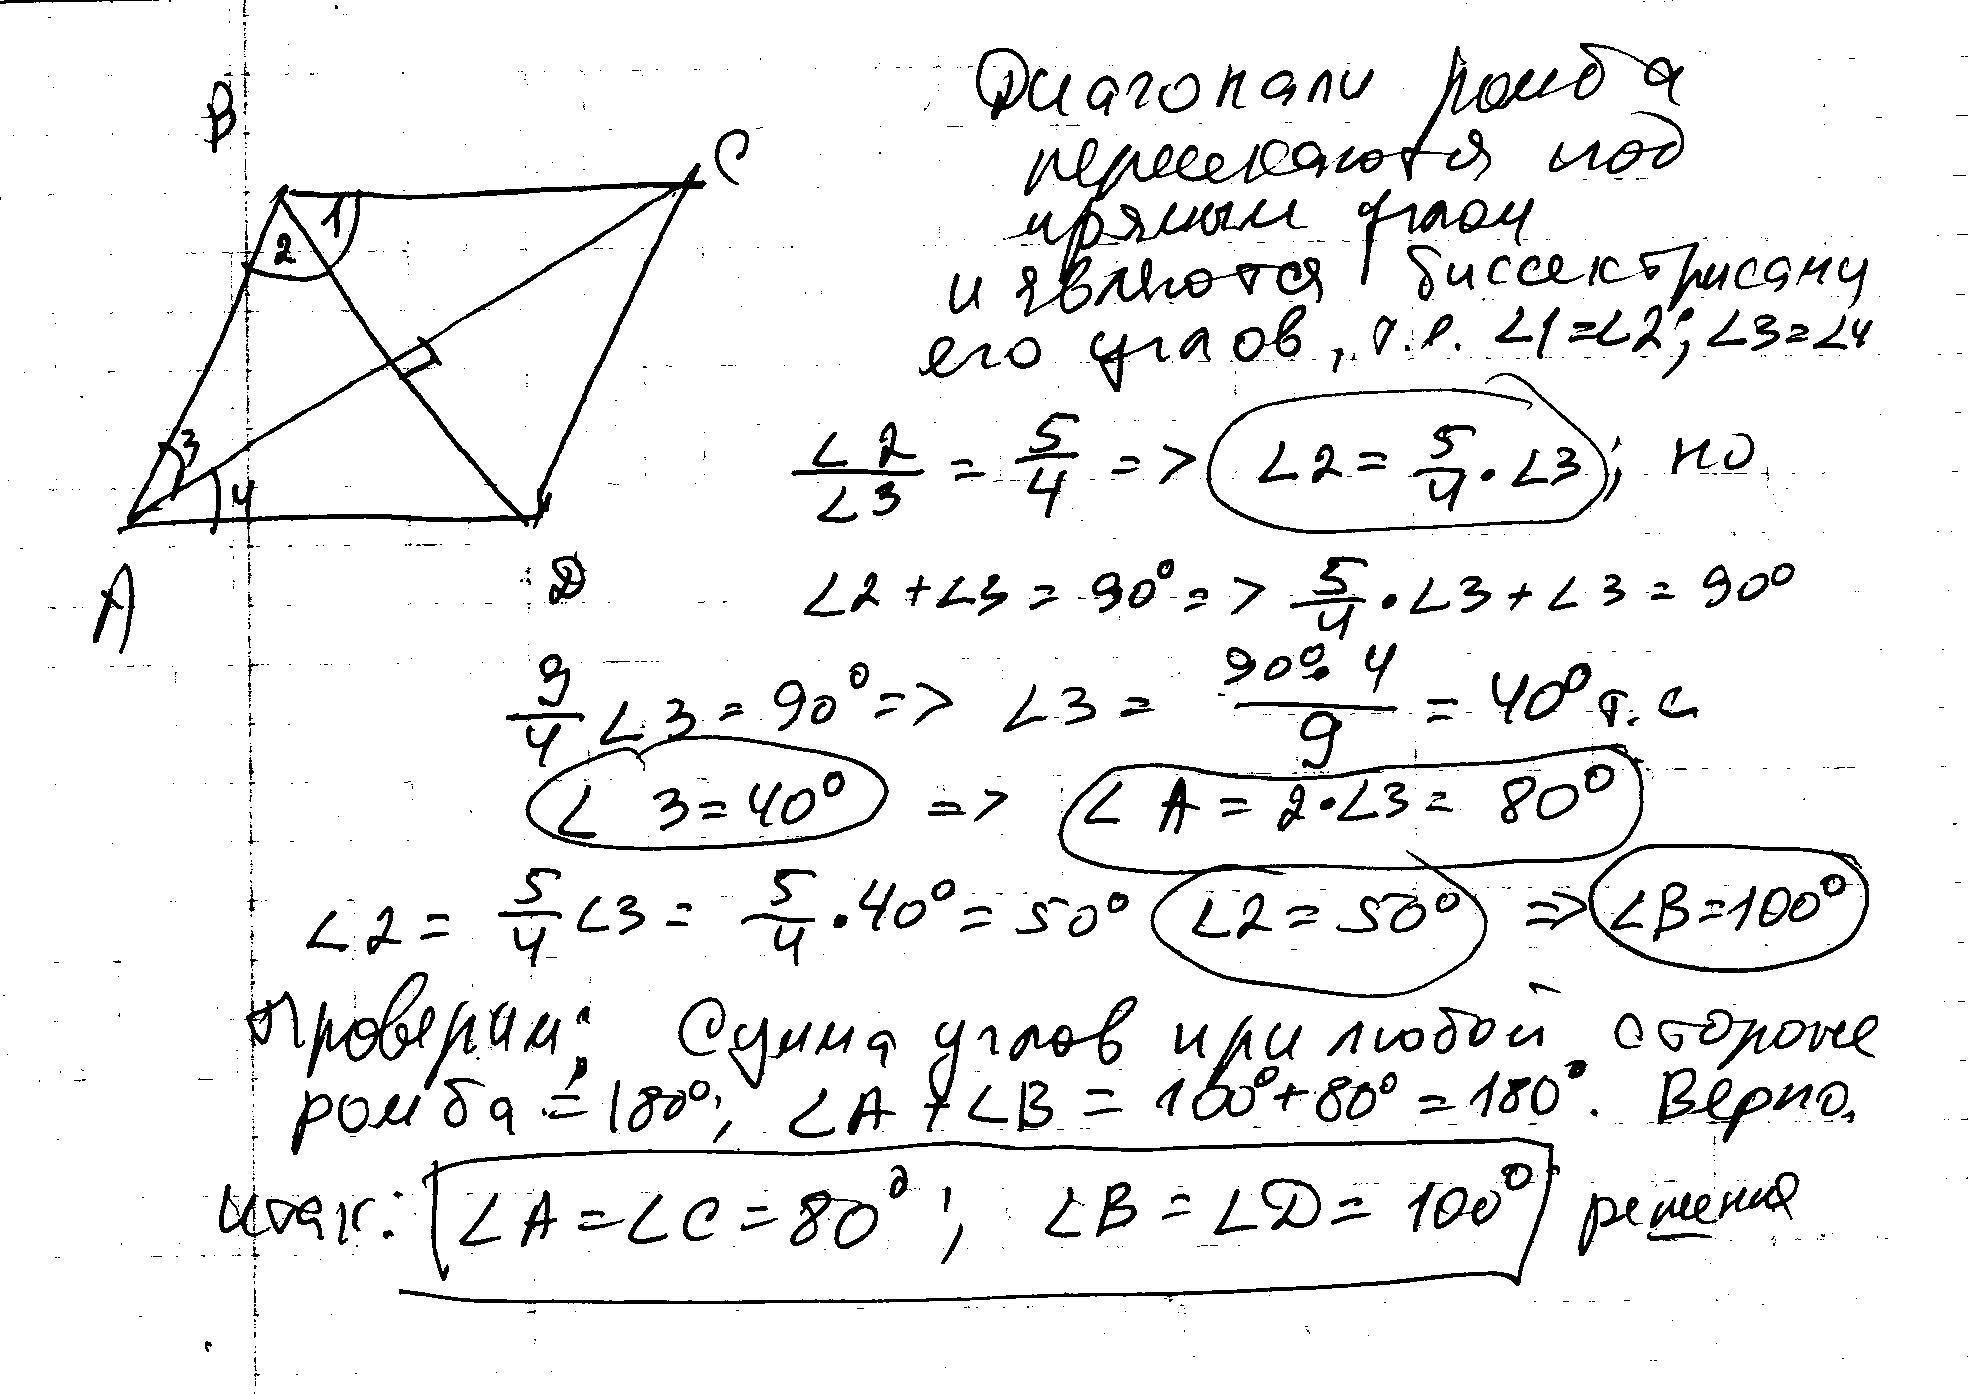 B
C
1
2
3
4
A
D
Диагонали ромба
пересекаются под
прямым углом
и являются биссектрисами
его углов, т.е. ∠1=∠2; ∠3=∠4
∠2/∠3 = 5/4 => ∠2 = 5/4 · ∠3; но
∠2+∠3 = 90° => 5/4 · ∠3 + ∠3 = 90°
9/4 ∠3 = 90° => ∠3 = 90° · 4/9 = 40° т.е.
∠3=40° => ∠A = 2·∠3 = 80°
∠2 = 5/4 ∠3 = 5/4 · 40° = 50° ∠2 = 50° => ∠B=100°
Проверим: Сумма углов при любой стороне
ромба = 180°; ∠A + ∠B = 100°+80° = 180°. Верно.
итак: ∠A = ∠C = 80°; ∠B = ∠D = 100° решена